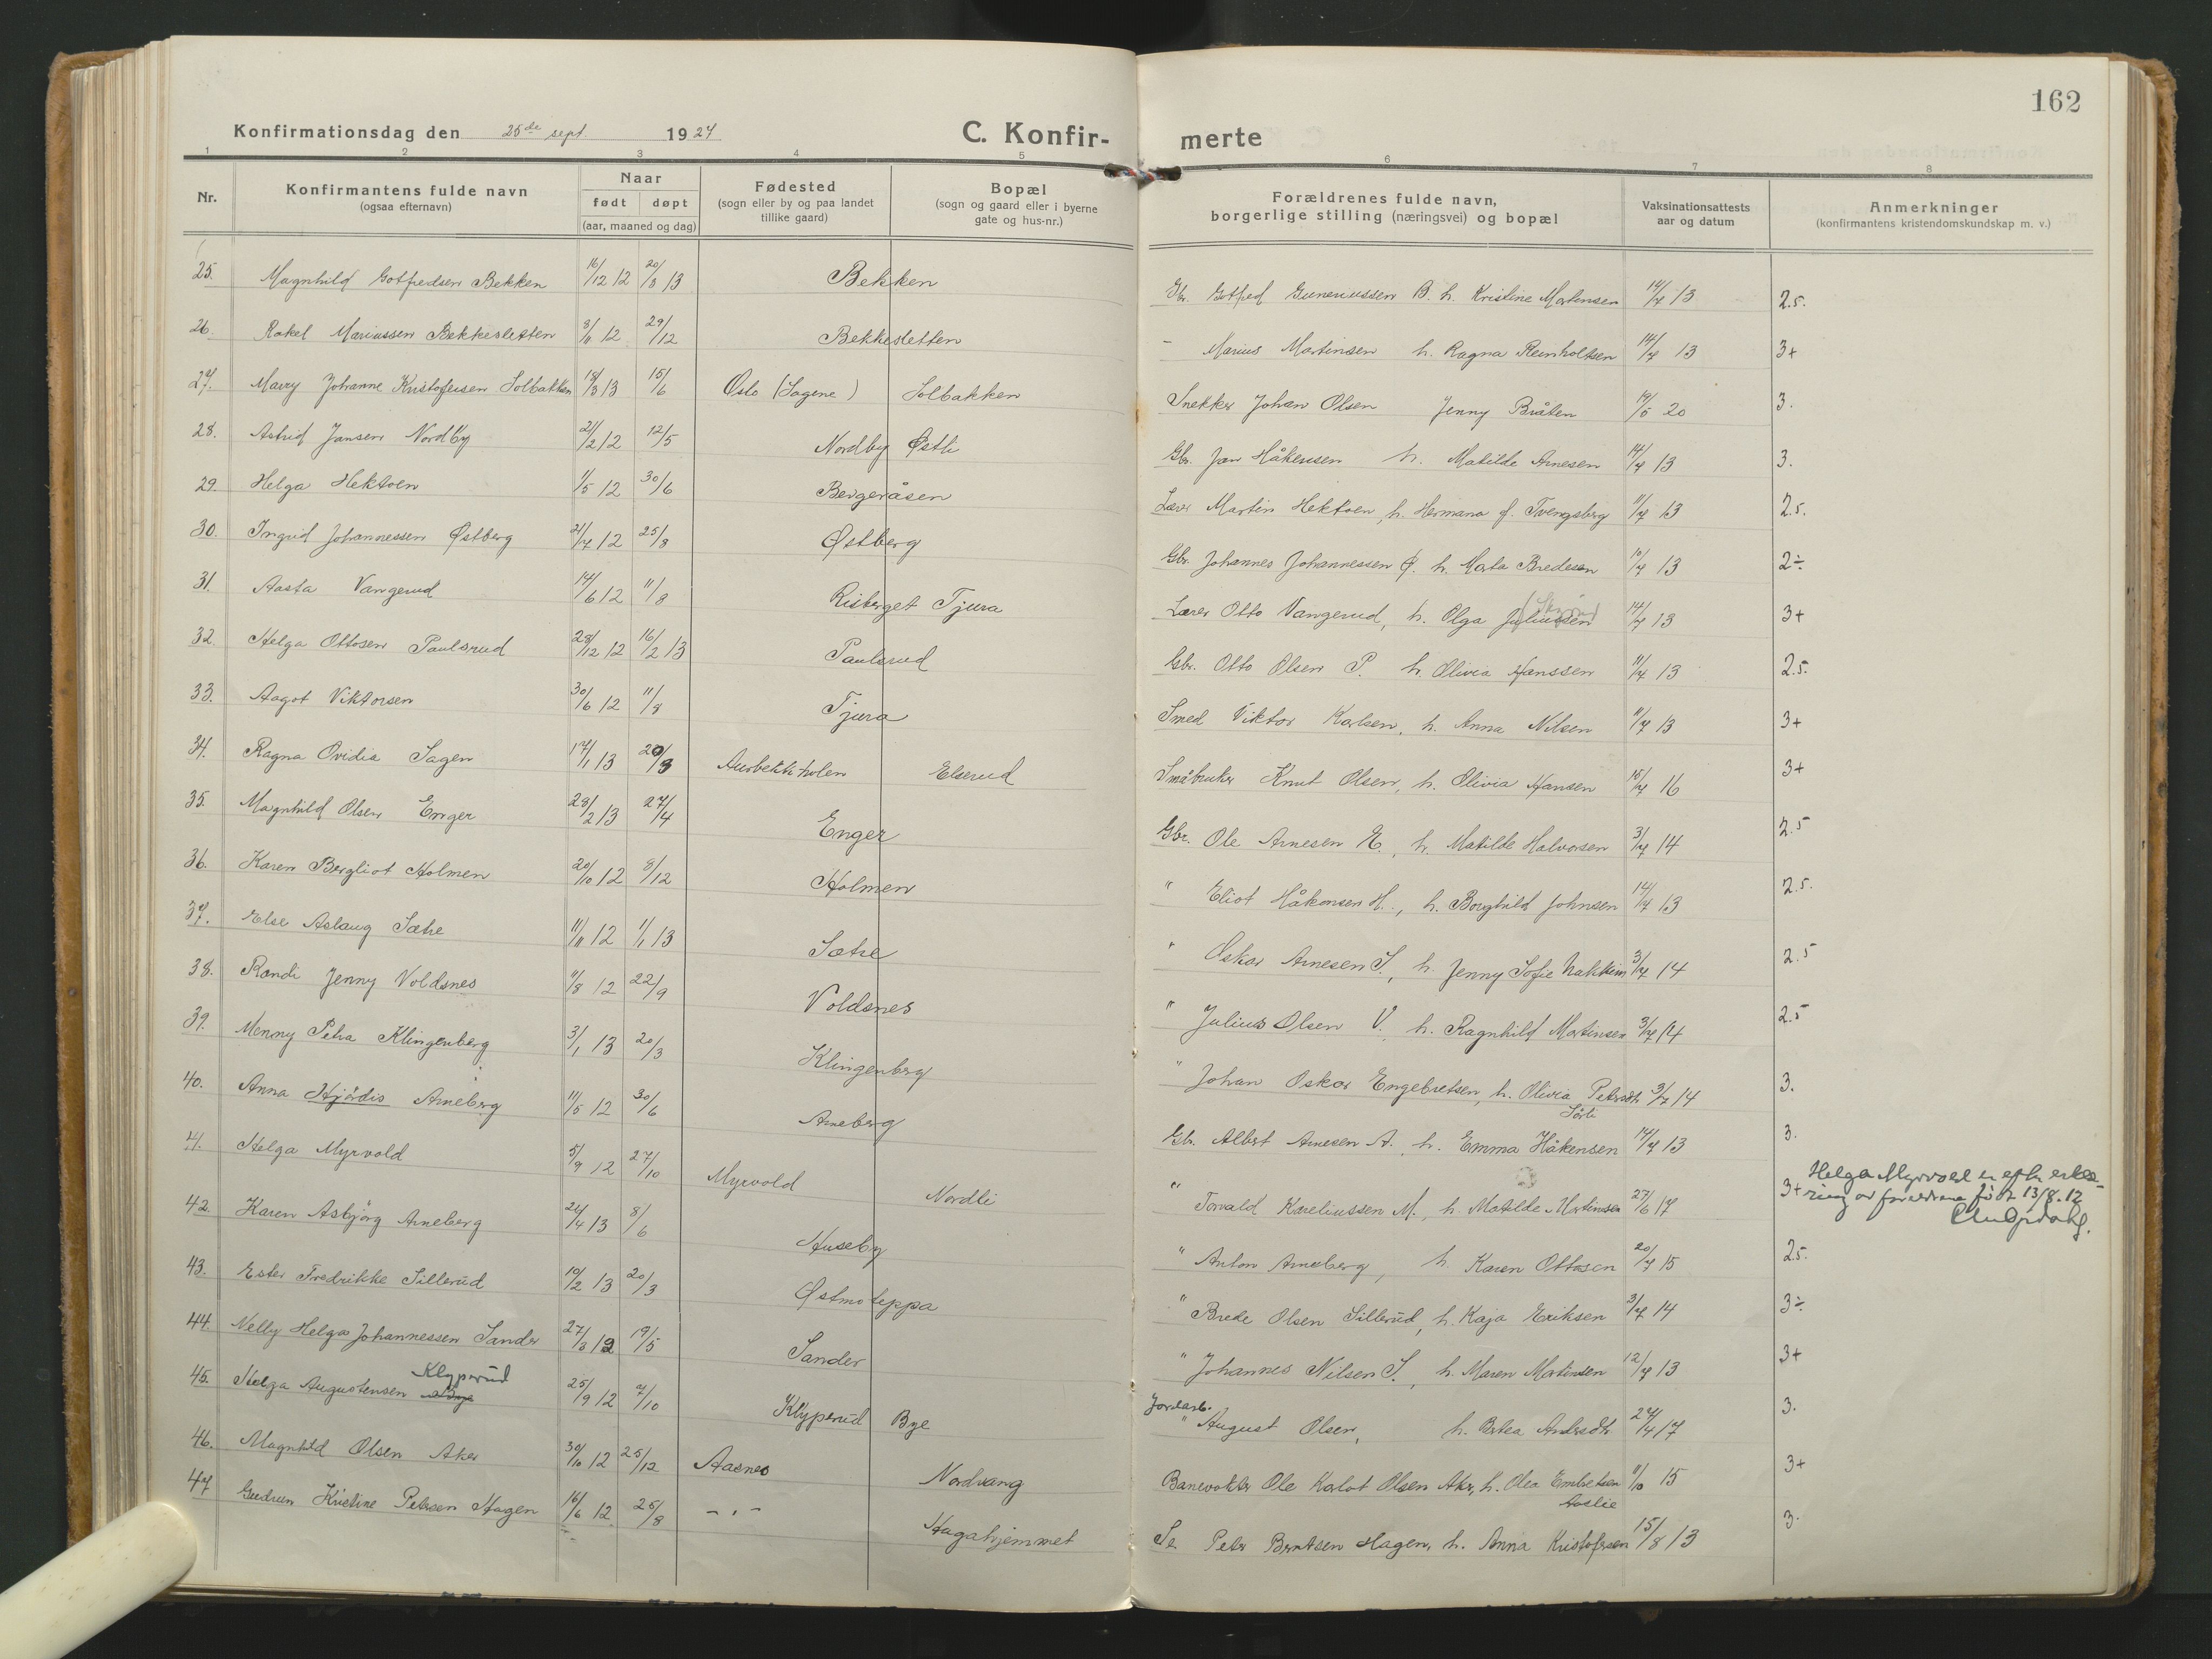 162
Konfirmationsdag den 25de sept. 1927
C. Konfir-
merte
1 2 3 4 5 6 7 8
Nr.
Konfirmantens fulde navn
(ogsaa efternavn)
Naar
født døpt
(aar, maaned og dag)
Fødested
(sogn eller by og paa landet
tillike gaard)
Bopæl
(sogn og gaard eller i byerne
gate og hus-nr.)
Forældrenes fulde navn,
borgerlige stilling (næringsvei) og bopæl
Vaksinationsattests
aar og datum
Anmerkninger
(konfirmantens kristendomskundskap m. v.)
25. Magnhild Gotfredsen Bekken 16/12 12 20/3 13 Bekken Gbr. Gotfred Guneriussen B. h. Kristine Martinsen 14/7 13 2.5.
26. Rakel Mariussen Bekkesletten 8/11 12 29/12 Bekkesletten - Marius Martinsen h. Ragna Reinholtsen 14/7 13 3+
27. Marry Johanne Kristofersen Solbakken 18/3 13 15/6 Oslo (Sagene) Solbakken Snekker Johan Olsen Jenny Bråten 19/5 20 3.
28. Astrid Jansen Nordby 21/2 12 12/5 Nordby Østli Gbr. Jan Håkensen h. Matilde Arnesen 14/7 13 3.
29. Helga Hektoen 1/5 12 30/6 Bergeråsen Lærer Martin Hektoen, h. Hermana f. Tvengsberg 11/7 13 2.5.
30. Ingrid Johannessen Østberg 21/7 12 25/8 Østberg Gbr. Johannes Johannessen Ø. h. Marta Bredesen 10/7 13 2÷
31. Aasta Vangerud 14/6 12 11/8 Risberget Tjura Lærer Otto Vangerud, h. Olga Juliussen 14/7 13 3+
32. Helga Ottosen Paulsrud 28/12 12 16/2 13 Paulsrud Gbr. Otto Olsen P. h. Olivia Hanssen 11/7 13 2.5.
33. Aagot Viktorsen 30/6 12 11/8 Tjura Smed Viktor Karlsen, h. Anna Nilsen 11/7 13 3+
34. Ragna Ovidia Sagen 17/1 13 20/3 Aurbekkholen Elserud Småbruker Knut Olsen, h. Olivia Hansen 15/7 16 3+
35. Magnhild Olsen Enger 28/2 13 27/4 Enger Gbr. Ole Arnesen E., h. Matilde Halvorsen 3/7 14 2.5
36. Karen Bergliot Holmen 20/10 12 8/12 Holmen " Eliot Håkonsen H., h. Borghild Johnsen 14/7 13 2.5.
37. Else Aslaug Sætre 11/11 12 1/1 13 Sætre " Oskar Arnesen S., h. Jenny Sofie Nakkim 3/7 14 2.5
38. Randi Jenny Voldsnes 11/8 12 22/9 Voldsnes " Julius Olsen V. h. Ragnhild Martinsen 3/7 14 2.5
39. Menny Petra Klingenberg 3/1 13 20/3 Klingenberg " Johan Oskar Engebretsen, h. Olivia Petersdtr. 3/7 14 3.
Sørli
40. Anna Hjørdis Arneberg 11/5 12 30/6 Arneberg Gbr. Albert Arnesen A., h. Emma Håkensen 14/7 13 3.
41. Helga Myrvold 5/9 12 27/10 Myrvold Nordli " Torvald Kareliussen M., h. Matilde Martinsen 27/6 17 3+ Helga Myrvold er efter erklæ-
ring av foreldrene født 13/8. 12
42. Karen Asbjørg Arneberg 24/4 13 8/6 Huseby " Anton Arneberg, h. Karen Ottosen 20/7 15 2.5.
43. Ester Fredrikke Sillerud 10/2 13 20/3 Østmoteppa " Brede Olsen Sillerud, h. Kaja Eriksen 3/7 14 3÷
44. Nelly Helga Johannessen Sander 27/3 12 19/5 Sander " Johannes Nilsen S., h. Maren Martinsen 12/7 13 3+
Klyperud
45. Helga Augustensen 25/9 12 7/10 Klyperud Bye Jordarb. " August Olsen, h. Bertea Andersdtr 24/4 17 3.
46. Magnhild Olsen Aker 30/10 12 25/12 Aasnes Nordvang Banevokter Ole Karlot Olsen Aker, h. Olea Embretsen 11/10 15 3+
Aaslie
47 Gudrun Kristine Petersen Hagen 16/6 12 25/8 - " - Hagahjemmet Peter Berntsen Hagen, h. Anna Kristofersen 15/8 13 3.